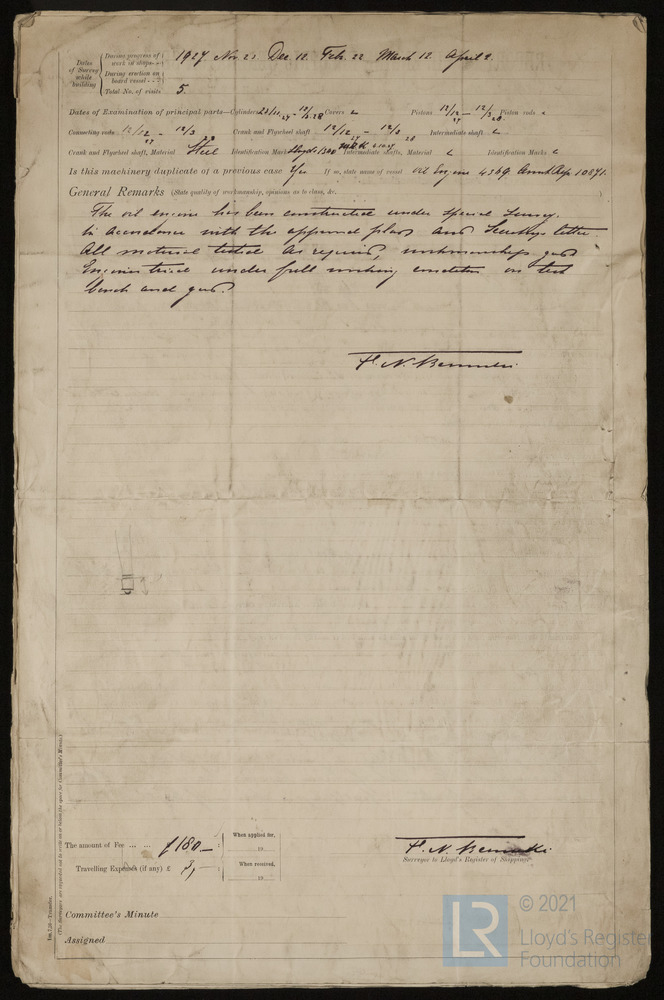 Dates of Survey while building
During progress of work in shops - - 1927. Nov 21 Dec 12. Feb. 22 March 12. April 2.
During erection on board vessel - - -
Total No. of visits 5.
Dates of Examination of principal parts—Cylinders Covers Pistons 12/12 27 - 12/3 28 Piston rods
Connecting rods 12/12 27 - 12/3 28 Crank and Flywheel shaft 12/12 27 - 12/3 28 Intermediate shaft
Crank and Flywheel shaft, Material Steel Identification Mark Lloyd's Intermediate shafts, Material Identification Marks
Is this machinery duplicate of a previous case Yes If so, state name of vessel oil Engine 4369. Rep. 10871.
General Remarks (State quality of workmanship, opinions as to class, &c.
The oil engine has been constructed under special survey.
in accordance with the approved plans and Secretarys letter.
All material tested as required, workmanship good
Engine tried under full working condition on test
bench and good.
The amount of Fee ... ... £ 180.—
Travelling Expenses (if any) £ 3,—
When applied for,
19
When received,
19
Surveyor to Lloyd's Register of Shipping.
Committee's Minute
Assigned
1m.7.26—Transfer.
(The Surveyors are requested not to write on or below the space for Committee's Minute.)
LR
© 2021
Lloyd's Register
Foundation